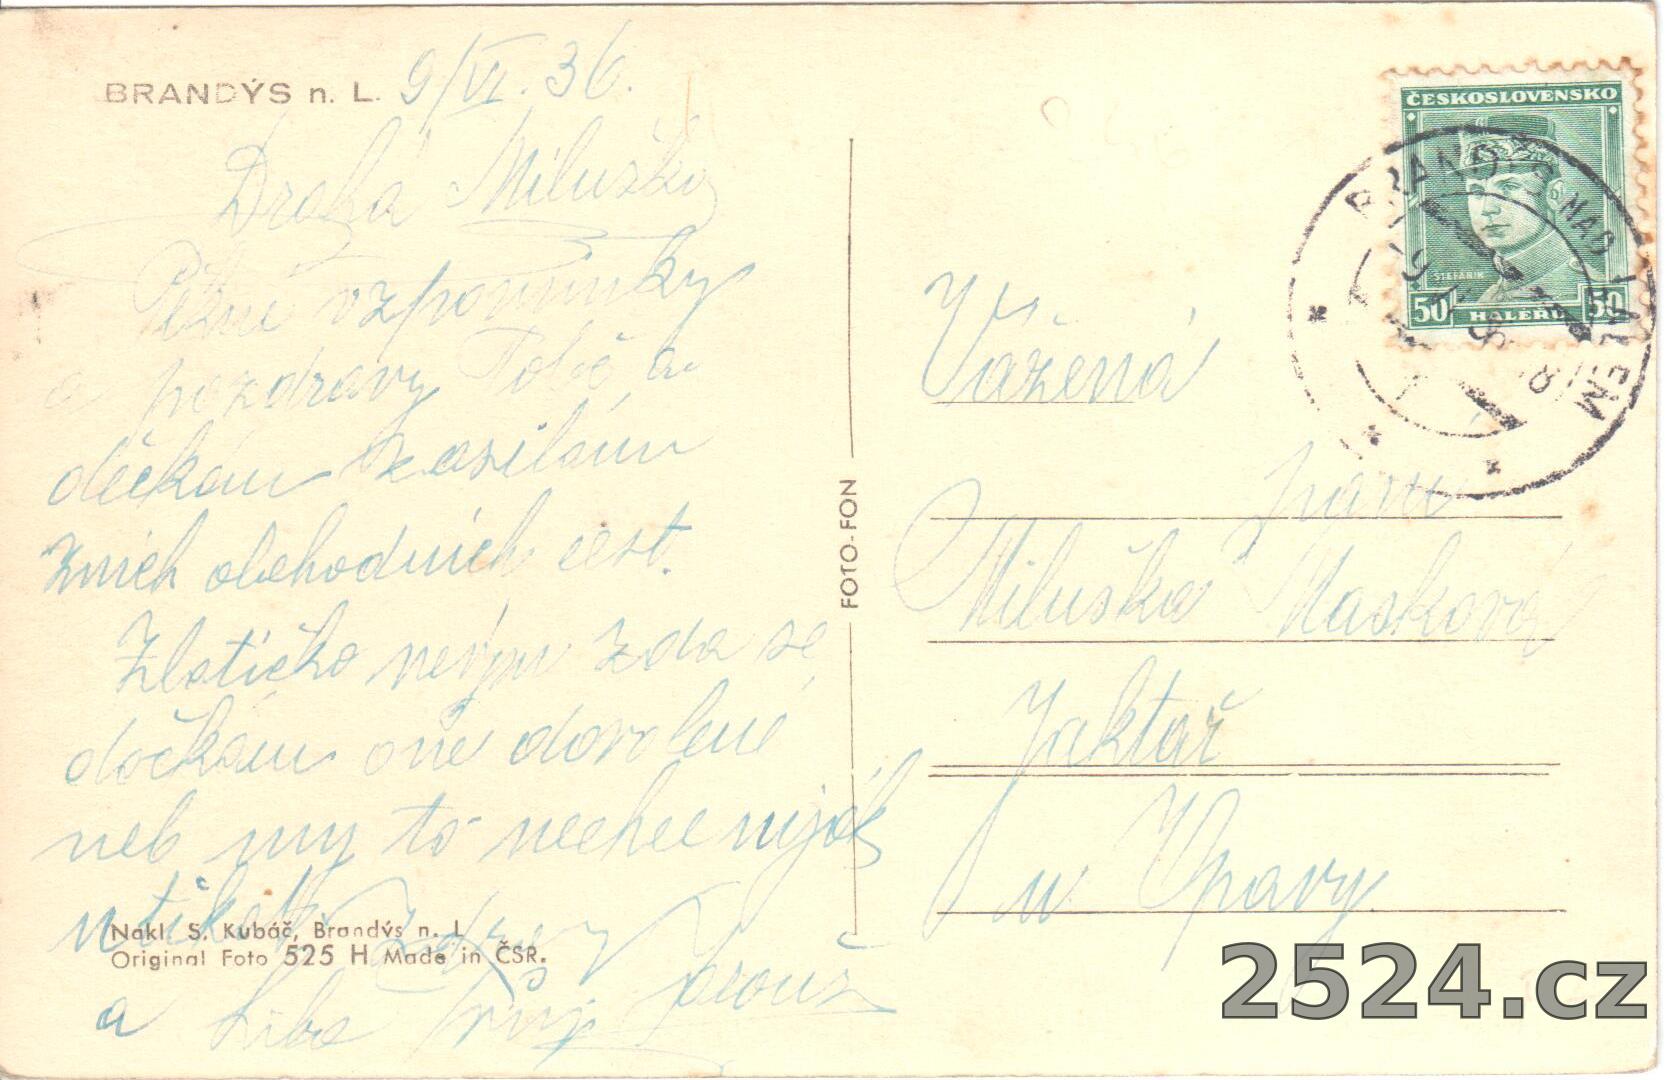 BRANDÝS n. L. 9/VI. 36.
Drahá Miluško
Pěkné vzpomínky
a pozdravy Tobě a
děčkám zasílám
z mích obchodních cest.
Zlatíčko nevím zda se
dočkám oné dovolené
neb my to nechce nijak
utíkat. Zdraví
a líbá
Nakl. S. Kubáč, Brandýs n. L
Original Foto 525 H Made in ČSR.
FOTO-FON
ČESKOSLOVENSKO
ŠTEFÁNIK
50 HALÉŘŮ 50
BRANDÝS NAD LABEM
Vážená
paní
Miluška Masková
Jaktař
u Opavy.
2524.cz